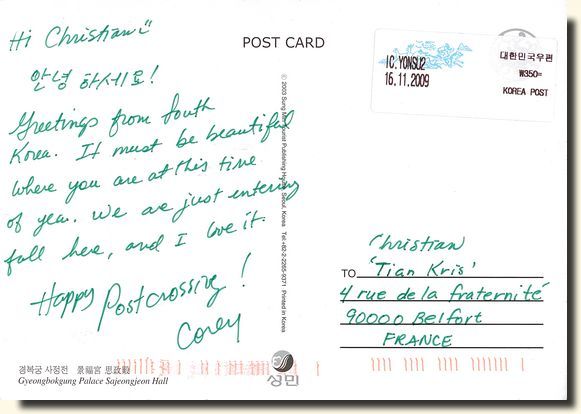 Hi Christian
POST CARD
IC.YONSU2
16.11.2009
대한민국우편
₩350=
KOREA POST
안녕 하세요!
Greetings from South
Korea. It must be beautiful
where you are at this time
of year. We are just entering
fall here, and I love it.
Happy Postcrossing!
Corey
Christian
TO 'Tian Kris'
4 rue de la fraternité
90000 Belfort
FRANCE
경복궁 사정전 景福宮 思政殿
Gyeongbokgung Palace Sajeongjeon Hall
성민